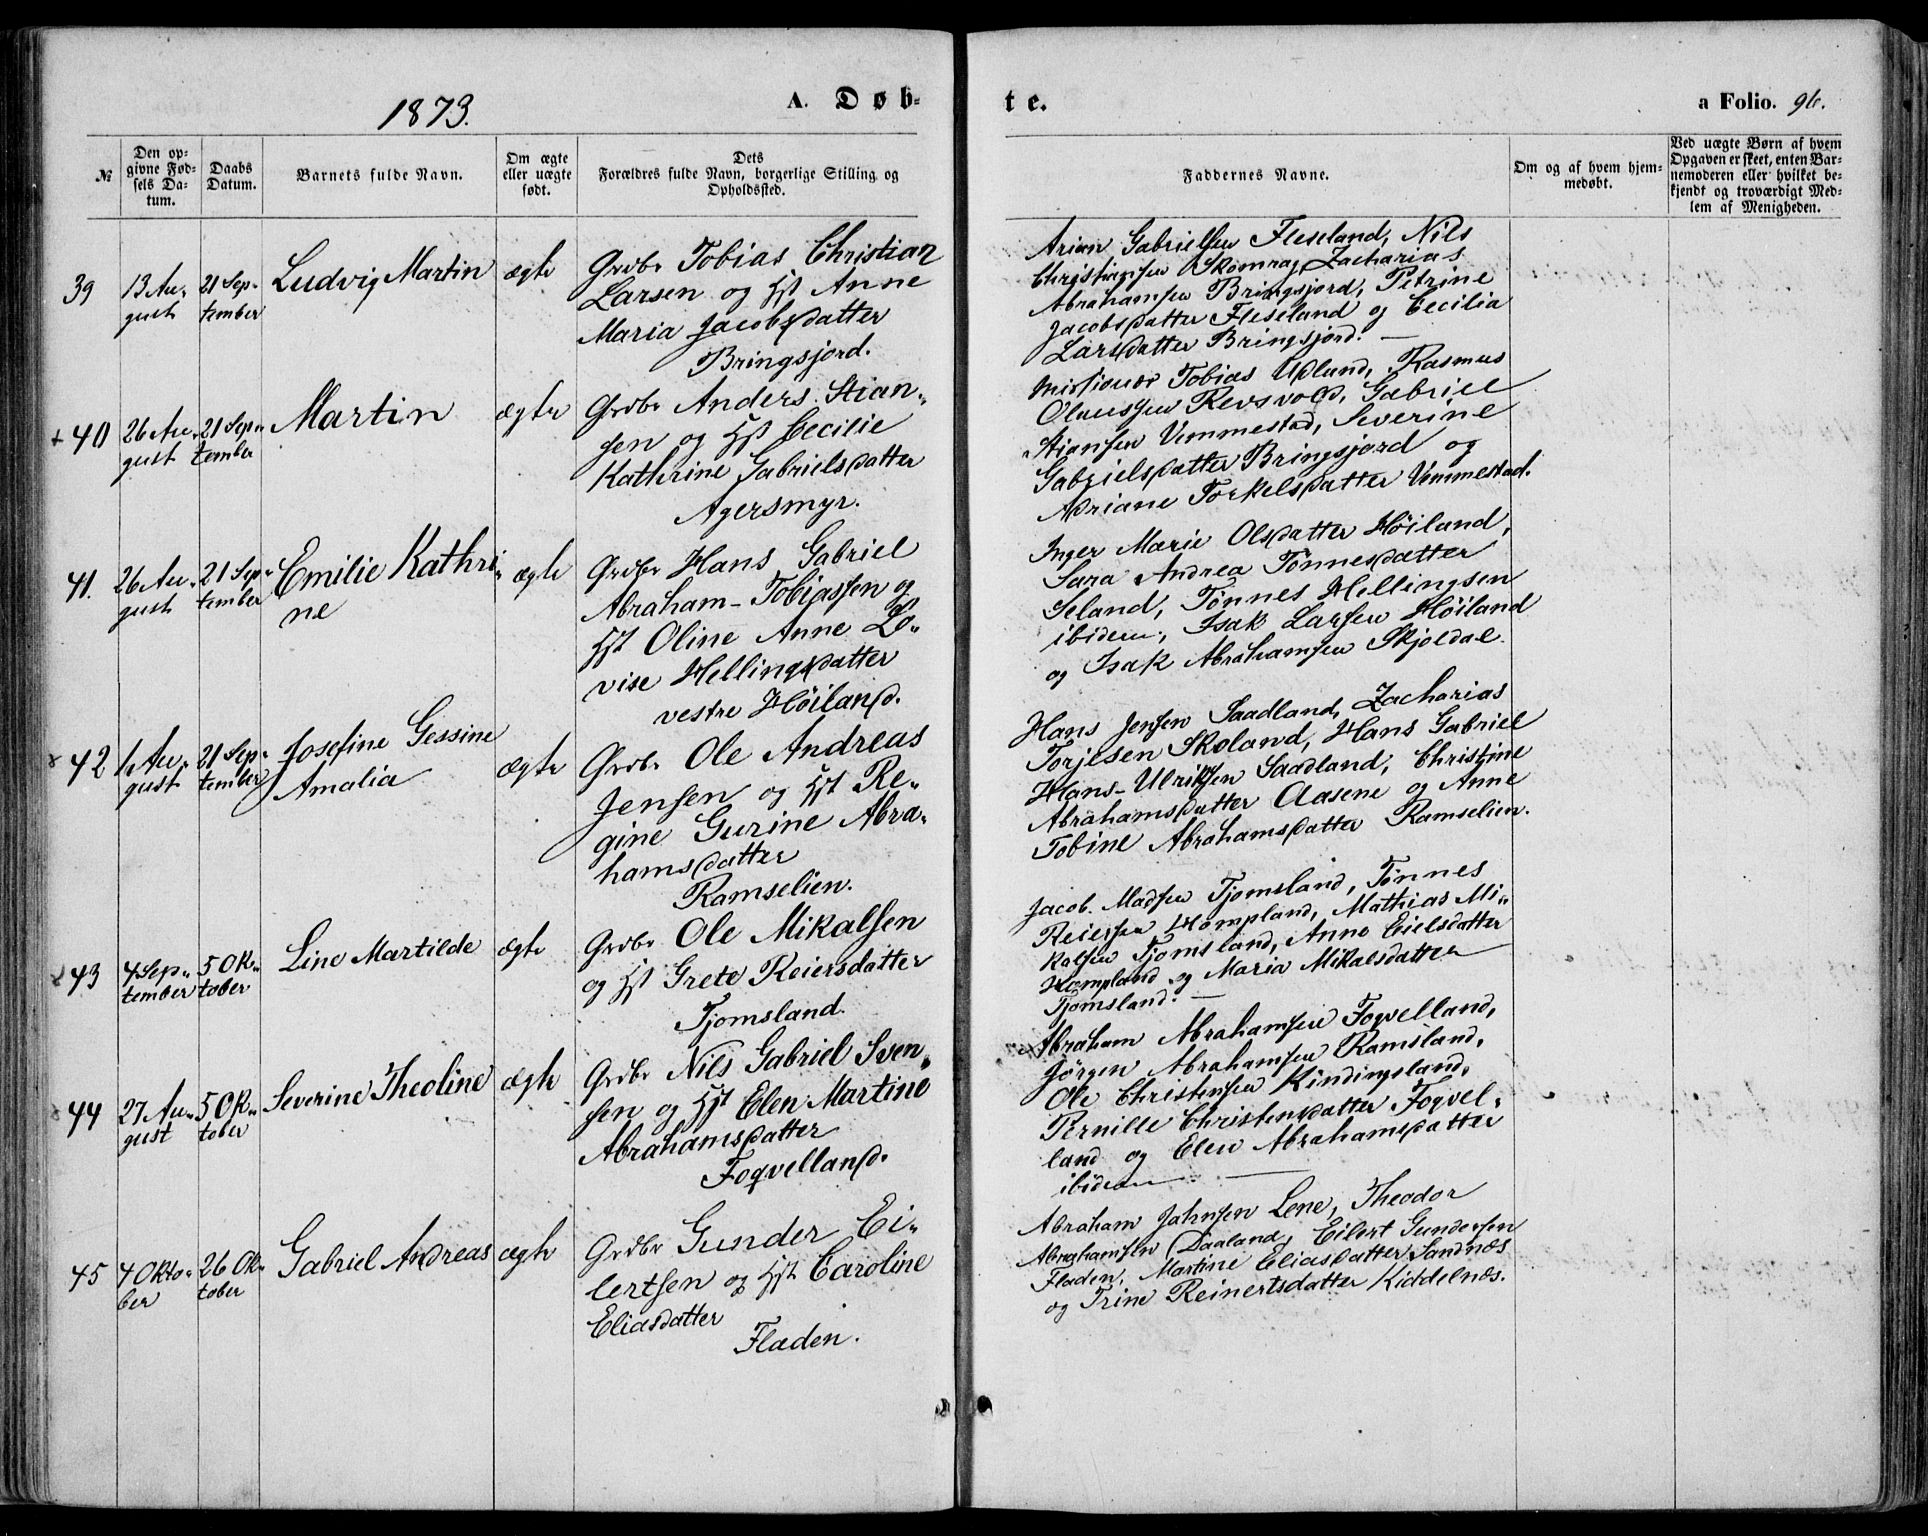 1873.
A. Døb-
te.
a Folio. 96.
№
Den op-
givne Fød-
sels Da-
tum.
Daabs
Datum.
Barnets fulde Navn.
Om ægte
eller uægte
født.
Dets
Forældres fulde Navn, borgerlige Stilling og
Opholdssted.
Faddernes Navne.
Om og af hvem hjem-
medøbt.
Ved uægte Børn af hvem
Opgaven er skeet, enten Bar-
nemoderen eller hvilket be-
kjendt og troværdigt Med-
lem af Menigheden.
39
13 Au-
gust
21 Sep-
tember
Ludvig Martin
ægte
Grdbr Tobias Christian
Larsen og Hst Anne
Maria Jacobsdatter
Bringsjord.
Arian Gabrielsen Fleseland, Nils
Christiansen Skomrag, Zacharias
Abrahamsen Bringsjord, Petrine
Jacobsdatter Fleseland og Cecilia
Larsdatter Bringsjord.
+ 40
26 Au-
gust
21 Sep-
tember
Martin
ægte
Grdbr Anders Stian-
sen og Hst Cecilie
Kathrine Gabrielsdatter
Agersmyr.
Missionær Tobias Udland, Rasmus
Olaussen Revsvold, Gabriel
Stiansen Vemmestad, Severine
Gabrielsdatter Bringsjord og
Adriane Torkelsdatter Vemmestad.
41.
26 Au-
gust
21 Sep-
tember
Emilie Kathri-
ne
ægte
Grdbr Hans Gabriel
Abraham-Tobiassen og
Hst Oline Anne Lo-
vise Hellingsdatter
vestre Höiland.
Inger Marie Olsdatter Höiland,
Sara Andrea Tönnesdatter
Seland, Tönnes Hellingsen
ibidem, Isak Larsen Höiland
og Isak Abrahamsen Skjoldal.
x 42
1 Au-
gust
21 Sep-
tember
Josefine Gessine
Amalia
ægte
Grdbr Ole Andreas
Jensen og Hst Re-
gine Gurine Abra-
hamsdatter
Ramselien.
Hans Jensen Saadland, Zacharias
Torjesen Skoland, Hans Gabriel
Hans-Ulriksen Saadland, Christine
Abrahamsdatter Aasene og Anne
Tobine Abrahamsdatter Ramselien.
x 43
4 Sep-
tember
5 Ok-
tober
Line Martilde
ægte
Grdbr Ole Mikalsen
og Hst Grete Reiersdatter
Tjomsland.
Jacob Madsen Tjomsland, Tönnes
Reiersen Hompland, Mathias Mi-
kalsen Tjomsland, Anne Eielsdatter
Hompland og Maria Mikalsdatter
Tjomsland.
x 44
27 Au-
gust
5 Ok-
tober
Severine Theoline
ægte
Grdbr Nils Gabriel Sven-
sen og Hst Elen Martine
Abrahamsdatter
Foqvelland.
Abraham Abrahamsen Foqvelland,
Jörgen Abrahamsen Ramsland,
Ole Christensen Kindingsland,
Pernille Christensdatter Foqvel-
land og Elen Abrahamsdatter
ibidem
45
4 Okto-
ber
26 Ok-
tober
Gabriel Andreas
ægte
Grdbr Gunder Ei-
lertsen og Hst Caroline
Eliasdatter
Fladen.
Abraham Jahnsen Lene, Theodor
Abrahamsen Daaland, Eilert Gundersen
Fladen, Martine Eliasdatter Sandnæs
og Trine Reinertsdatter Kiddelnæs.